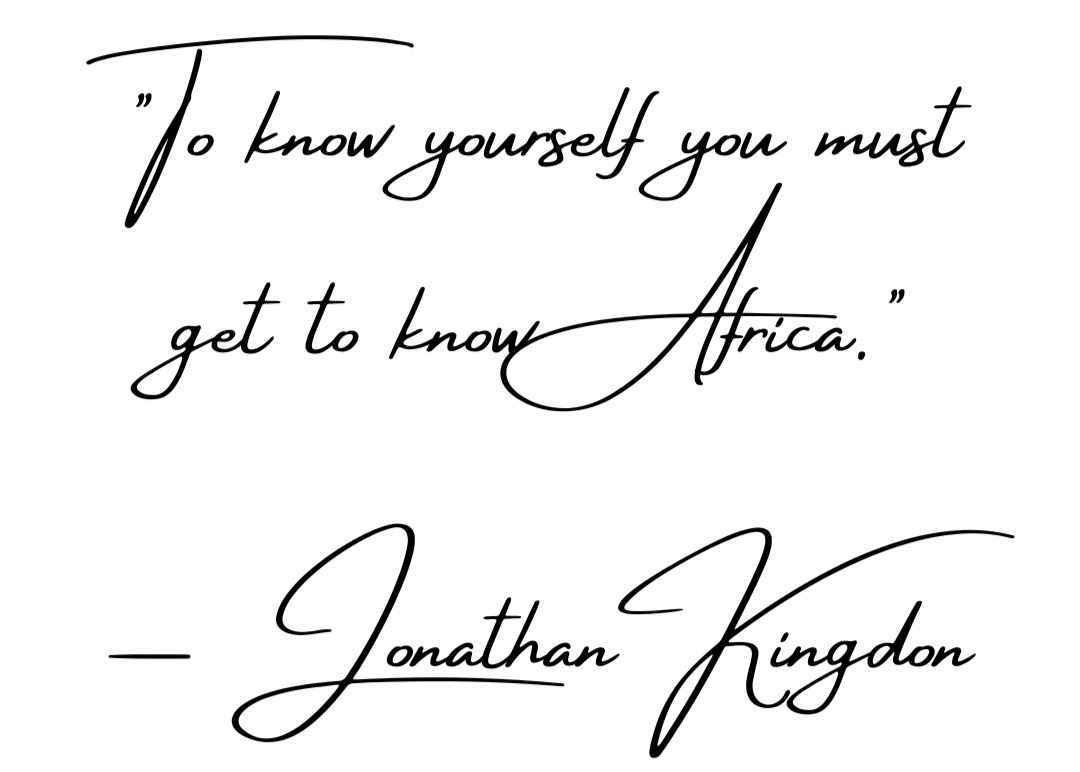 ”To know yourself you must
get to know Africa.”
— Jonathan Kingdon